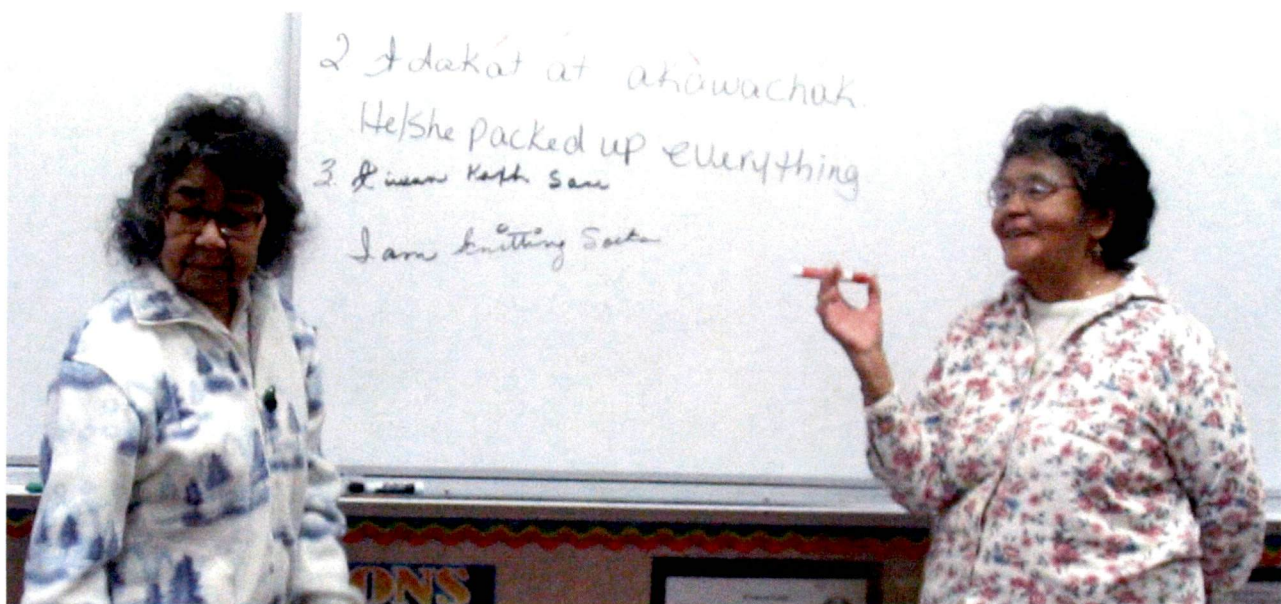 2 Adakát át akàwachák.
He/she packed up everything
3.
I am knitting Socks
ONS